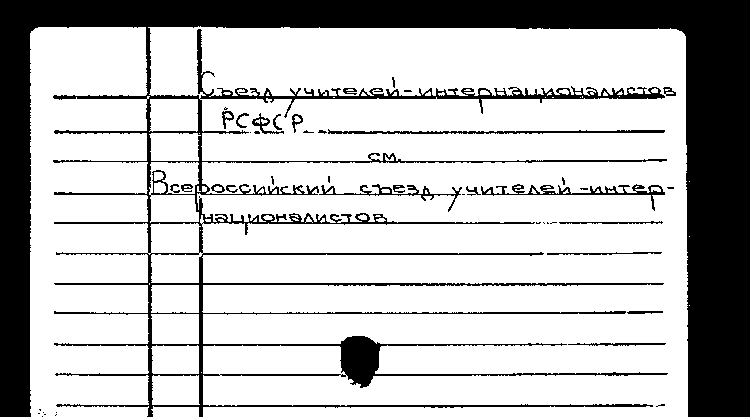 Съезд учителей-интернационалистов
РСФСР
см.
Всероссийский съезд учителей-интер-
националистов